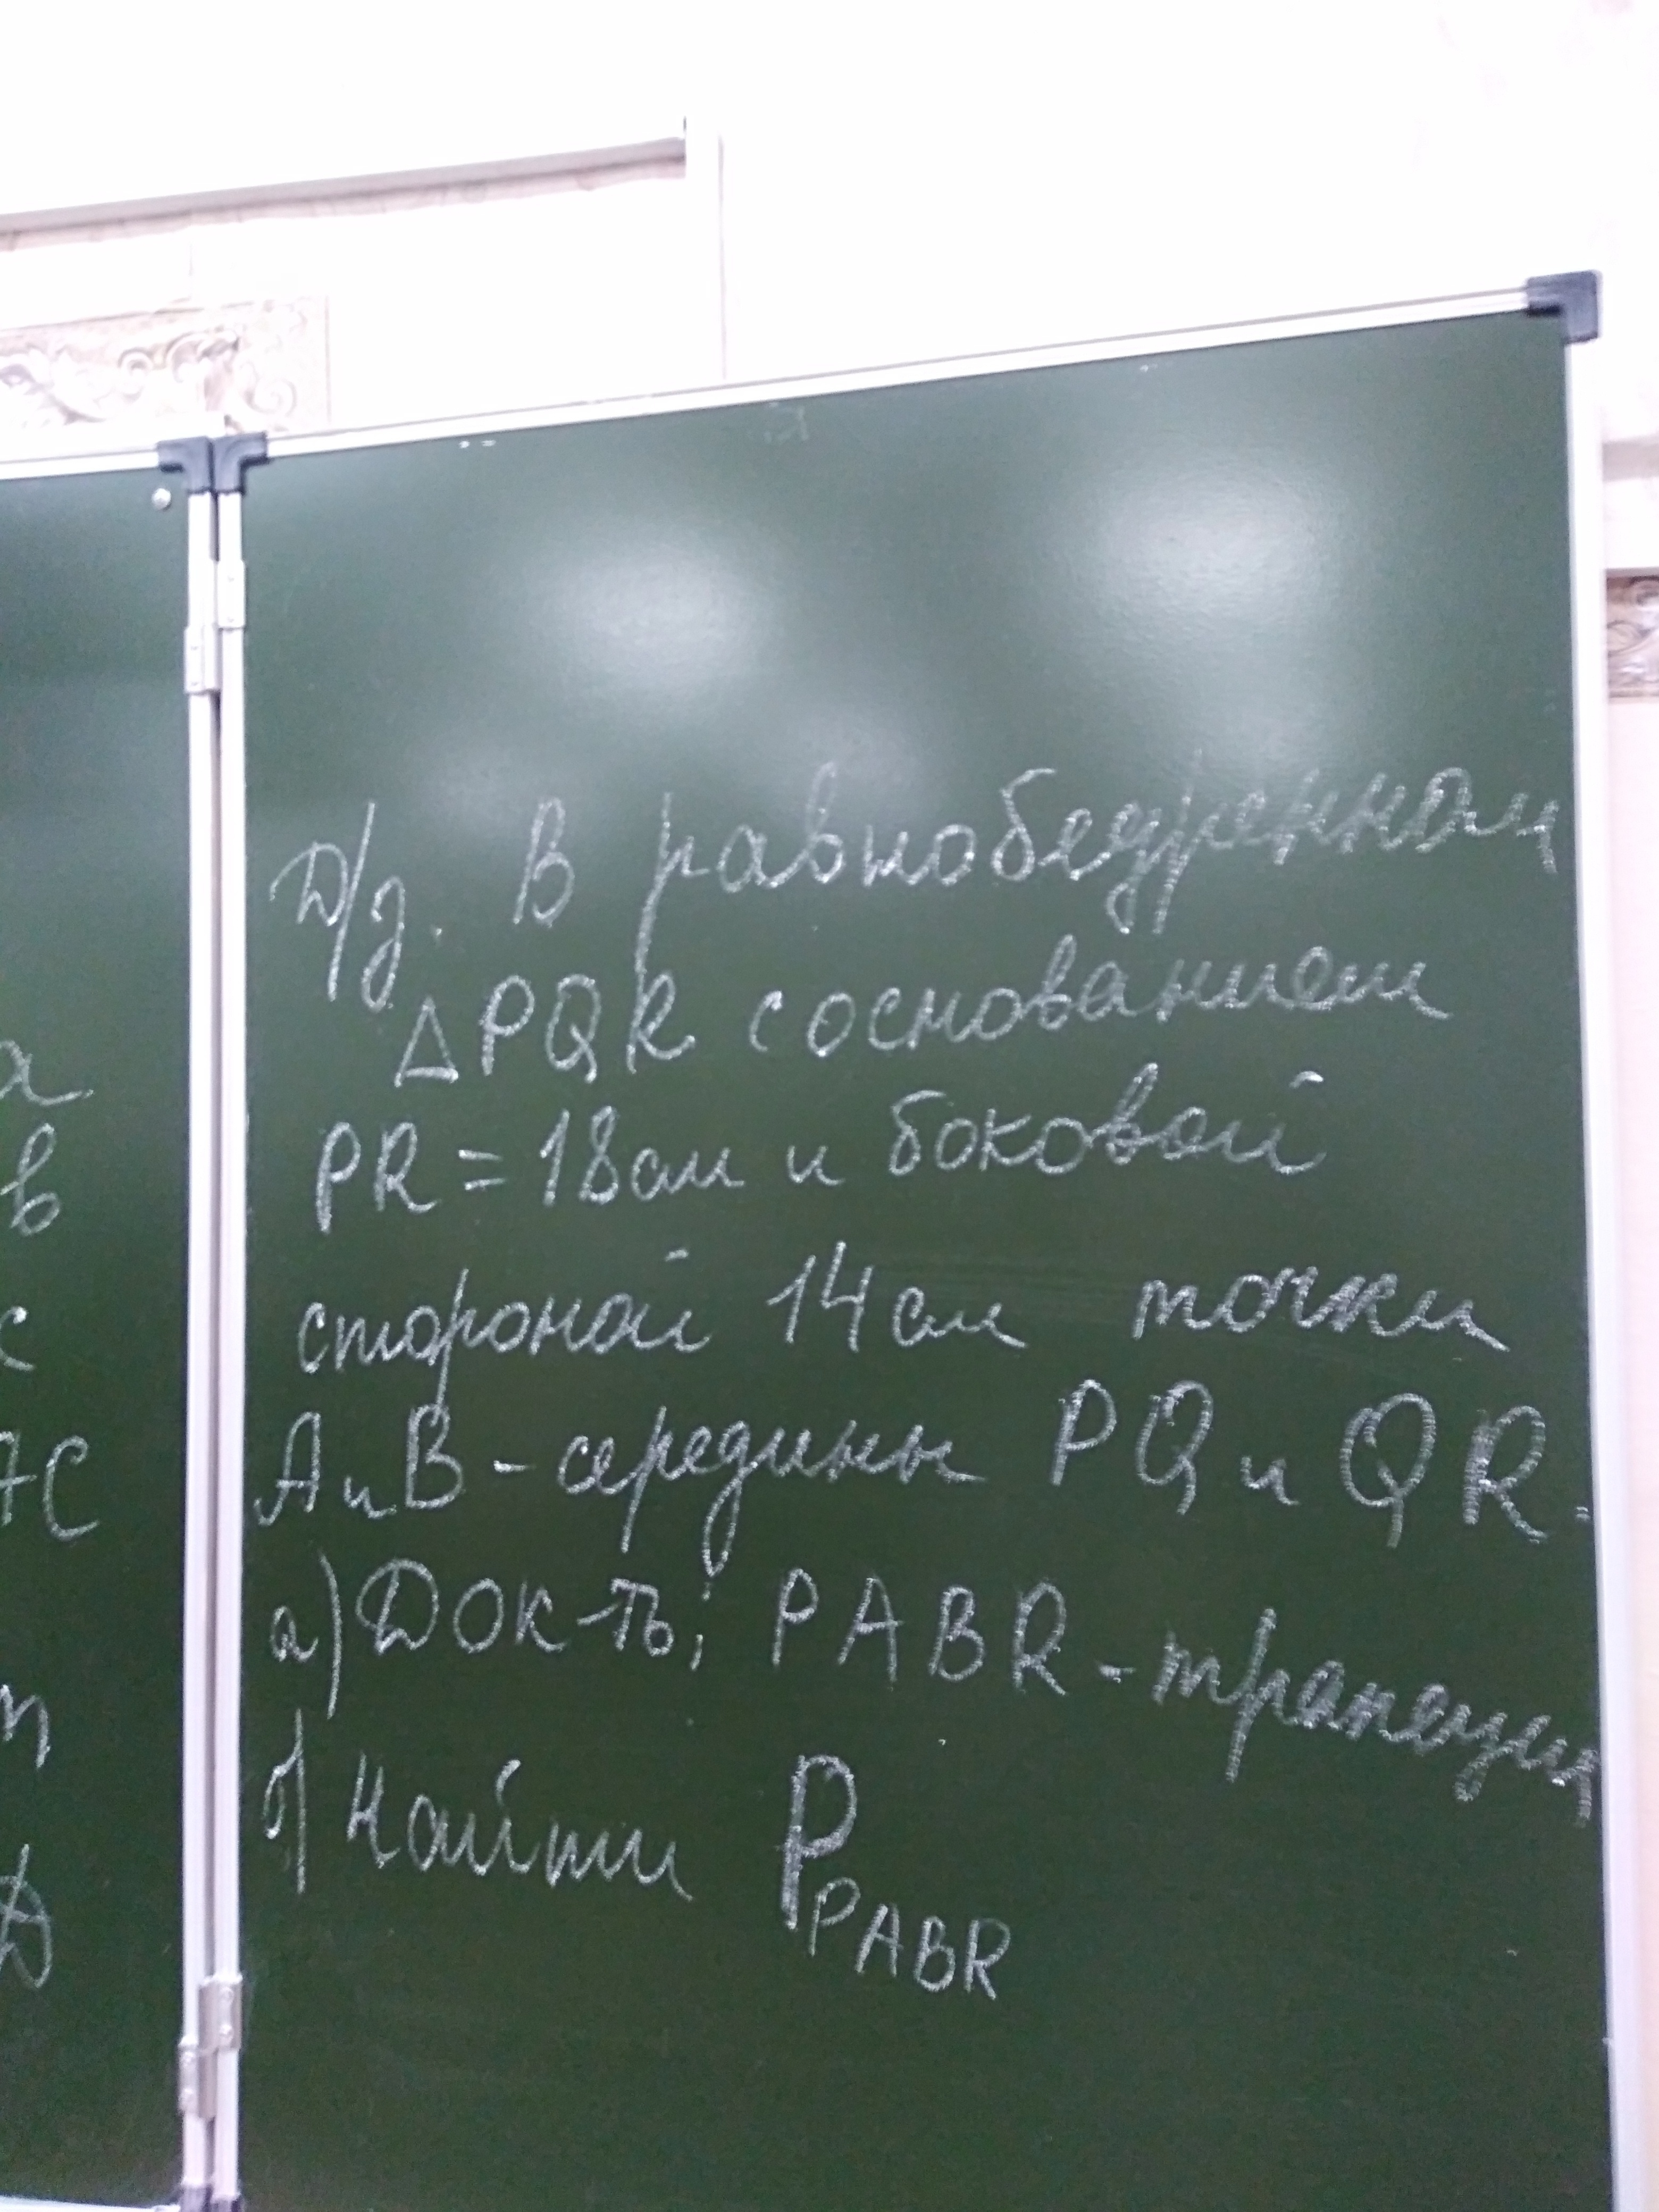 а
в
с
АС
п
Д
Д/з. В равнобедренном
△PQR с основанием
PR = 18см и боковой
стороной 14см точки
А и В - середины PQ и QR.
а) Док-ть; PABR - трапеция
б) Найти P PABR